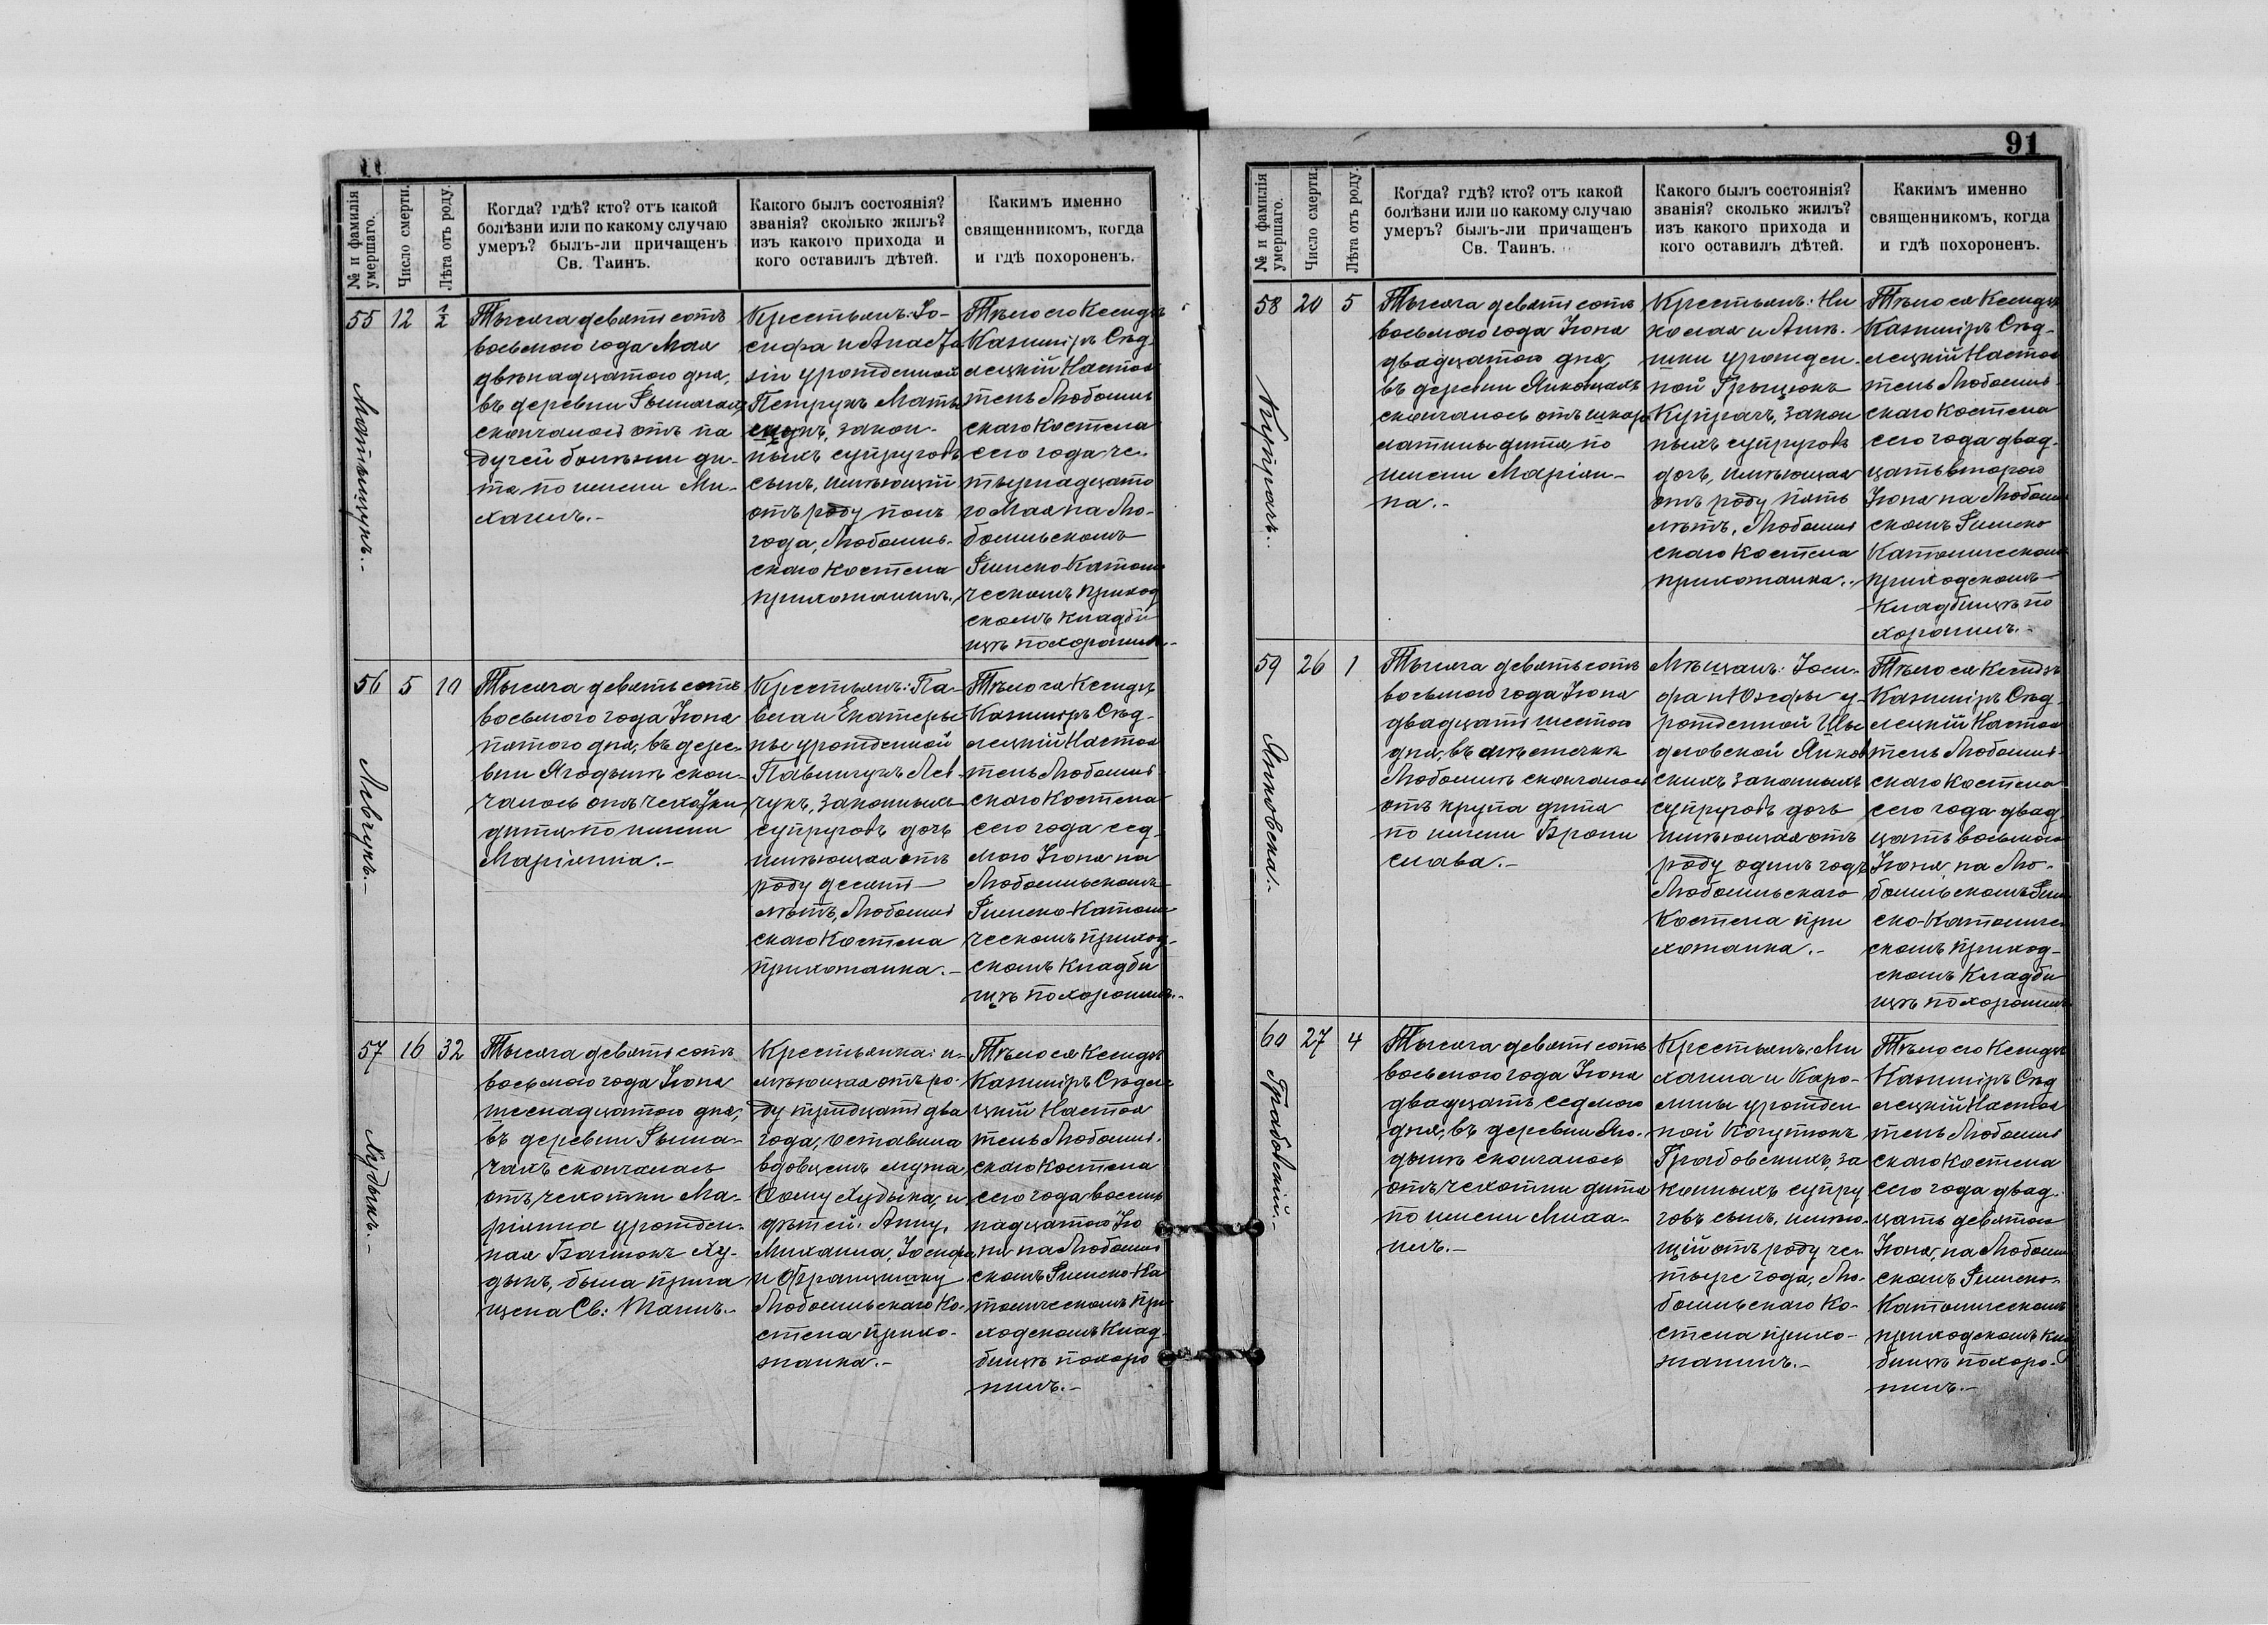 91
№ и фамилія
умершаго.
Число смерти.
Лѣта отъ роду.
Когда? гдѣ? кто? отъ какой
болѣзни или по какому случаю
умеръ? былъ-ли причащенъ
Св. Таинъ.
Какого былъ состоянія?
званія? сколько жилъ?
изъ какого прихода и
кого оставилъ дѣтей.
Каким именно
священникомъ, когда
и гдѣ похороненъ.
55
Матыщукъ.
12
1/2
Тысяча девятьсотъ
восьмого года Мая
двѣнадцатого дня,
въ деревни Рымачах
скончалось отъ па
дучей болѣзни ди-
тя по имени Ми-
хаилъ.-
Крестьянъ: Іо-
сифа и Анаста
зіи урожденной
Петрукъ Маты
щукъ, закон-
ныхъ супруговъ
сынъ, имѣющій
отъ роду полъ
года, Любомль-
скаго Костела
прихожанинъ.
Тѣло его Ксендзъ
Казиміръ Сѣд-
лецкій Настоя
тель Любомль
скаго Костела
сего года че-
тырнадцато
го Мая на Лю-
бомльскомъ
Римско-Католи
ческомъ приход
скомъ кладби
щѣ похоронилъ.-
56
Левчукъ.-
5
10
Тысяча девятьсотъ
восьмого года Іюня
пятого дня, въ дере-
вни Ягодынѣ скон-
чалось отъ чехотки
дитя по имени
Маріянна.-
Крестьянъ: Па-
вла и Екатеры
ны урожденной
Павлинчукъ Лев-
чукъ, законныхъ
супруговъ дочь
имѣющая отъ
роду десять
лѣтъ, Любомль
скаго Костела
прихожанка.-
Тѣло ея Ксендзъ
Казиміръ Сѣд-
лецкій Настоя
тель Любомль-
скаго Костела
сего года сед-
мого Іюня на
Любомльскомъ
Римско-Католи
ческомъ приход-
скомъ кладби
щѣ похоронилъ.-
57
Худыкъ.-
16
32
Тысяча девятьсотъ
восьмого года Іюня
шеснадцатого дня,
въ деревни Рыма-
чахъ скончалась
отъ чехотки Ма-
ріянна урожден-
ная Баглюкъ Ху-
дыкъ, была прича
щена Св: Таинъ.-
Крестьянка: и-
мѣющая отъ ро-
ду тридцать два
года, оставила
вдовцемъ мужа
Ѳому Худыка, и
дѣтей: Анну,
Михаила, Іосифа
и Францишку
Любомльскаго Ко-
стела прихо-
жанка.-
Тѣло ея Ксендзъ
Казиміръ Сѣдле-
цкій Настоя
тель Любомль-
скаго Костела
сего года восем
надцатого Ію
ня на Любомль
скомъ Римско-Ка
толическомъ При-
ходскомъ Клад-
бищѣ похоро
нилъ.-
№ и фамилія
умершаго.
Число смерти.
Лѣта отъ роду.
Когда? гдѣ? кто? отъ какой
болѣзни или по какому случаю
умеръ? былъ-ли причащенъ
Св. Таинъ.
Какого былъ состоянія?
званія? сколько жилъ?
изъ какого прихода и
кого оставилъ дѣтей.
Какимъ именно
священникомъ, когда
и гдѣ похороненъ.
58
Купрачъ.
20
5
Тысяча девятьсотъ
восьмого года Іюня
двадцатого дня,
въ деревни Янковцахъ
скончалось отъ шкарл
латины дитя по
имени Маріян-
на.-
Крестьянъ: Ни
колая и Агнѣ-
шки урожден-
ной Грыцюкъ
Купрачъ, закон
ныхъ супруговъ
дочь, имѣющая
отъ роду пять
лѣтъ, Любомль
скаго Костела
прихожанка.-
Тѣло ея Ксендзъ
Казиміръ Сѣд-
лецкій Настоя
тель Любомль
скаго Костела
сего года двад-
цать второго
Іюня на Любомль
скомъ Римско
Католическомъ
приходскомъ
кладбищѣ по
хоронилъ.-
59
Янковска.-
26
1
Тысяча девятьсотъ
восьмого года Іюня
двадцать шестого
дня, въ мѣстечкѣ
Любомлѣ скончалось
отъ крупа дитя
по имени Брони
слава.-
Мѣщанъ: Іоси-
фа и Юзефы у-
рожденной Шы
дловской Янков
скихъ законныхъ
супруговъ дочь
имѣющая отъ
роду одинъ годъ
Любомльскаго
Костела при
хожанка.-
Тѣло ея Ксендзъ
Казиміръ Сѣд-
лецкій Настоя
тель Любомль-
скаго Костела
сего года двад
цать восьмого
Іюня, на Лю-
бомльскомъ Рим
ско-Католиче
скомъ приход-
скомъ Кладби
щѣ похоронилъ
60
Грабовскій.-
27
4
Тысяча девятьсотъ
восьмого года Іюня
двадцать седмого
дня, въ деревни Яго-
дынѣ скончалось
отъ чехотки дитя
по имени Миха-
илъ.-
Крестьянъ: Ми
хаила и Каро-
лины урожден
ной Когутюкъ
Грабовскихъ, за
конныхъ супру
говъ сынъ, имѣю-
щій отъ роду че-
тыре года, Лю-
бомльскаго Ко-
стела прихо-
жанинъ.-
Тѣло его Ксендзъ
Казиміръ Сѣд
лецкій Настоя
тель Любомль
скаго Костела
сего года двад-
цать девятого
Іюня, на Любомль
скомъ Римско-
Католическомъ
приходскомъ кла
бищѣ похоро-
нилъ.-